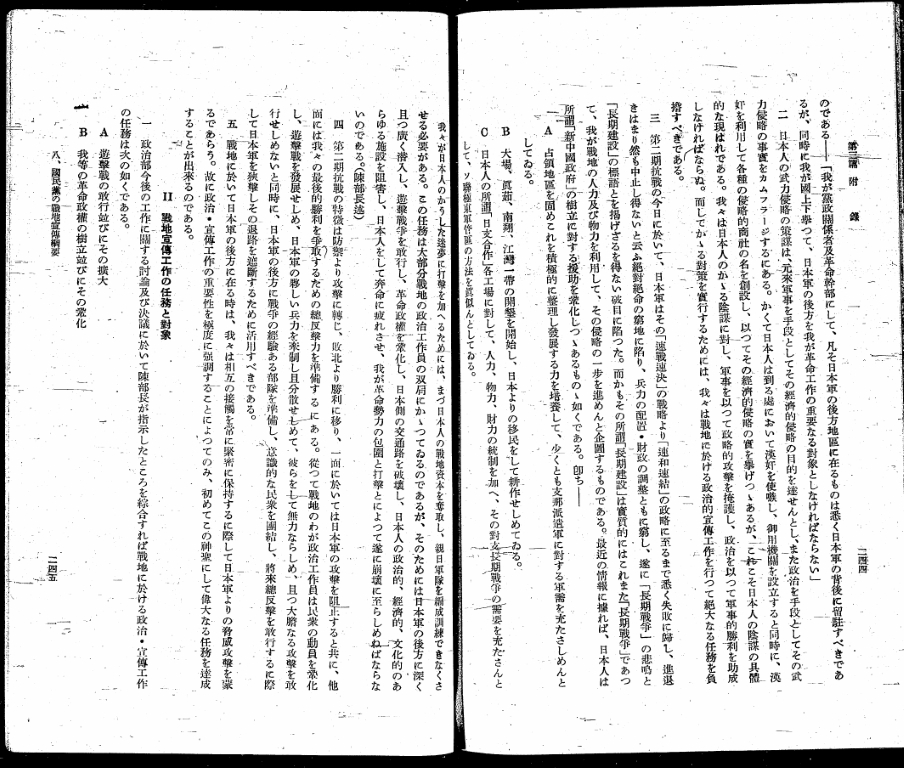 第三部附錄
二四四
のである――「我が黨政關係者及革命幹部にして、凡そ日本軍の後方地區に在るものは悉く日本軍の背後に留駐すべきであ
るが、同時に我が國上下擧つて、日本軍の後方を我が革命工作の重要なる對象としなければならない」
二 日本人の武力侵略の策謀は、元來軍事を手段としてその經濟的侵略の目的を達せんとし、また政治を手段としてその武
力侵略の事實をカムフラージするにある。かくて日本人は到る處において漢奸を使嗾し、御用機關を設立すると同時に、漢
奸を利用して各種の侵略的商社の名を創設し、以つてその經濟的侵略の實を擧げつゝあるが、これこそ日本人の陰謀の具體
的な現はれである。我々は日本人のかゝる陰謀に對し、軍事を以つて政略的攻擊を掩護し、政治を以つて軍事的勝利を助成
しなければならぬ。而してかゝる對策を實行するためには、我々は戰地に於ける政治的宣傳工作を行つて絕大なる任務を負
擔すべきである。
三 第二期抗戰の今日に於いて、日本軍はその「速戰速決」の戰略より「速和速結」の政略に至るまで悉く失敗に歸し、進退
きはまり然も中止し得ないと云ふ絕對絕命の窮地に陷り、兵力の配置・財政の調整ともに窮し、遂に「長期戰爭」の悲鳴と
「長期建設」の標語とを揭げざるを得ない破目に陷つた。而かもその所謂「長期建設」は實質的にはこれまた「長期戰爭」であつ
て、我が戰地の人力及び物力を利用して、その侵略の一步を進めんと企圖するものである。最近の情報に據れば、日本人は
所謂「新中國政府」の樹立に對する援助を衆化しつゝあるものゝ如くである。卽ち――
A 占領地區を固めこれを積極的に整理し發展する力を培養して、少くとも支那派遣軍に對する軍需を充たさしめんと
してゐる。
B 大場、眞茹、南翔、江灣一帶の開墾を開始し、日本よりの移民をして耕作せしめてゐる。
C 日本人の所謂「日支合作」各工場に對して、人力、物力、財力の統制を加へ、その對支長期戰爭の需要を充たさんと
して、ソ聯極東軍管區の方法を眞似んとしてゐる。
我々が日本人のかうした迷夢に打擊を加へるためには、まづ日本人の戰地資本を奪取し、親日軍隊を編成訓練できなくさ
せる必要がある。この任務は大部分戰地の政治工作員の双肩にかゝつてゐるのであるが、そのためには日本軍の後方に深く
且つ廣く潛入し、遊擊戰爭を敢行し、革命政權を衆化し、日本側の交通路を破壞し、日本人の政治的、經濟的、文化的のあ
らゆる施設を阻害し、日本人をして奔命に疲れさせ、我が革命勢力の包圍と打擊とによつて遂に崩壞に至らしめねばならな
いのである。(陳部長述)
四 第二期抗戰の特徵は防禦より攻擊に轉じ、敗北より勝利に移り、一面に於いては日本軍の攻擊を阻止すると共に、他
面には我々の最後的勝利を爭取するための總反擊力を準備する にある。從つて戰地のわが政治工作員は民衆の動員を衆化
し、遊擊戰を發展せしめ、日本軍の夥しい兵力を牽制し且分散せしめて、彼らをして無力ならしめ、且つ大膽なる攻擊を敢
行せしめないと同時に、日本軍の後方に戰爭の經驗ある部隊を準備し、意識的な民衆を團結し、將來總反擊を敢行するに際
して日本軍を挾擊しその退路を遮斷するために活用すべきである。
五 戰地に於いて日本軍の後方に在る時は、我々は相互の接觸を常に緊密に保持するに際して日本軍よりの脅威攻擊を蒙
るであらう。故に政治・宣傳工作の重要性を極度に强調することによつてのみ、初めてこの神聖にして偉大なる任務を達成
することが出來るのである。
II 戰地宣傳工作の任務と對象
一 政治部今後の工作に關する討論及び決議に於いて陳部長が指示したところを綜合すれば戰地に於ける政治・宣傳工作
の任務は次の如くである。
A 遊擊戰の敢行並びにその擴大
B 我等の革命政權の樹立並びにその衆化
八、國民黨の戰地宣傳綱要
二四五